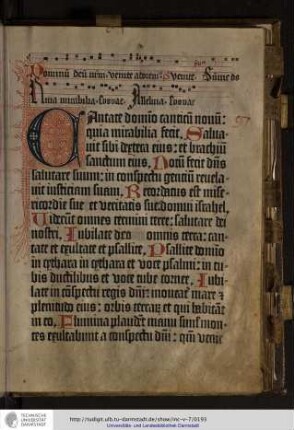 Dominū deū nrm venite adorem9 Venite
mirabilia Alleluia
CAntate domino canticū nouū:
quia mirabilia fecit. Salua-
uit sibi dextera eius: et brachiū
sanctum eius. Notū fecit dn̄s
salutare suum: in conspectu gentiū reuela-
uit iusticiam suam. Recordatus est mise-
ricordie sue et veritatis sue: domui israhel.
Viderūt omnes termini terre: salutare dei
nostri. Iubilate deo omnis terra: can-
tate et exultate et psallite. Psallite domino
in cythara in cythara et voce psalmi: in tu-
bis ductilibus et voce tube cornee. Iubi-
late in cōspectu regis dn̄i: moueat mare et
plenitudo eius: orbis terrarū et qui habitāt
in eo. Flumina plaudēt manu simul mon-
tes exultabunt a conspectu dn̄i: qm̄ venit
TECHNISCHE
UNIVERSITÄT
DARMSTADT
http://tudigit.ulb.tu-darmstadt.de/show/inc-v-7/0193
Universitäts- und Landesbibliothek Darmstadt